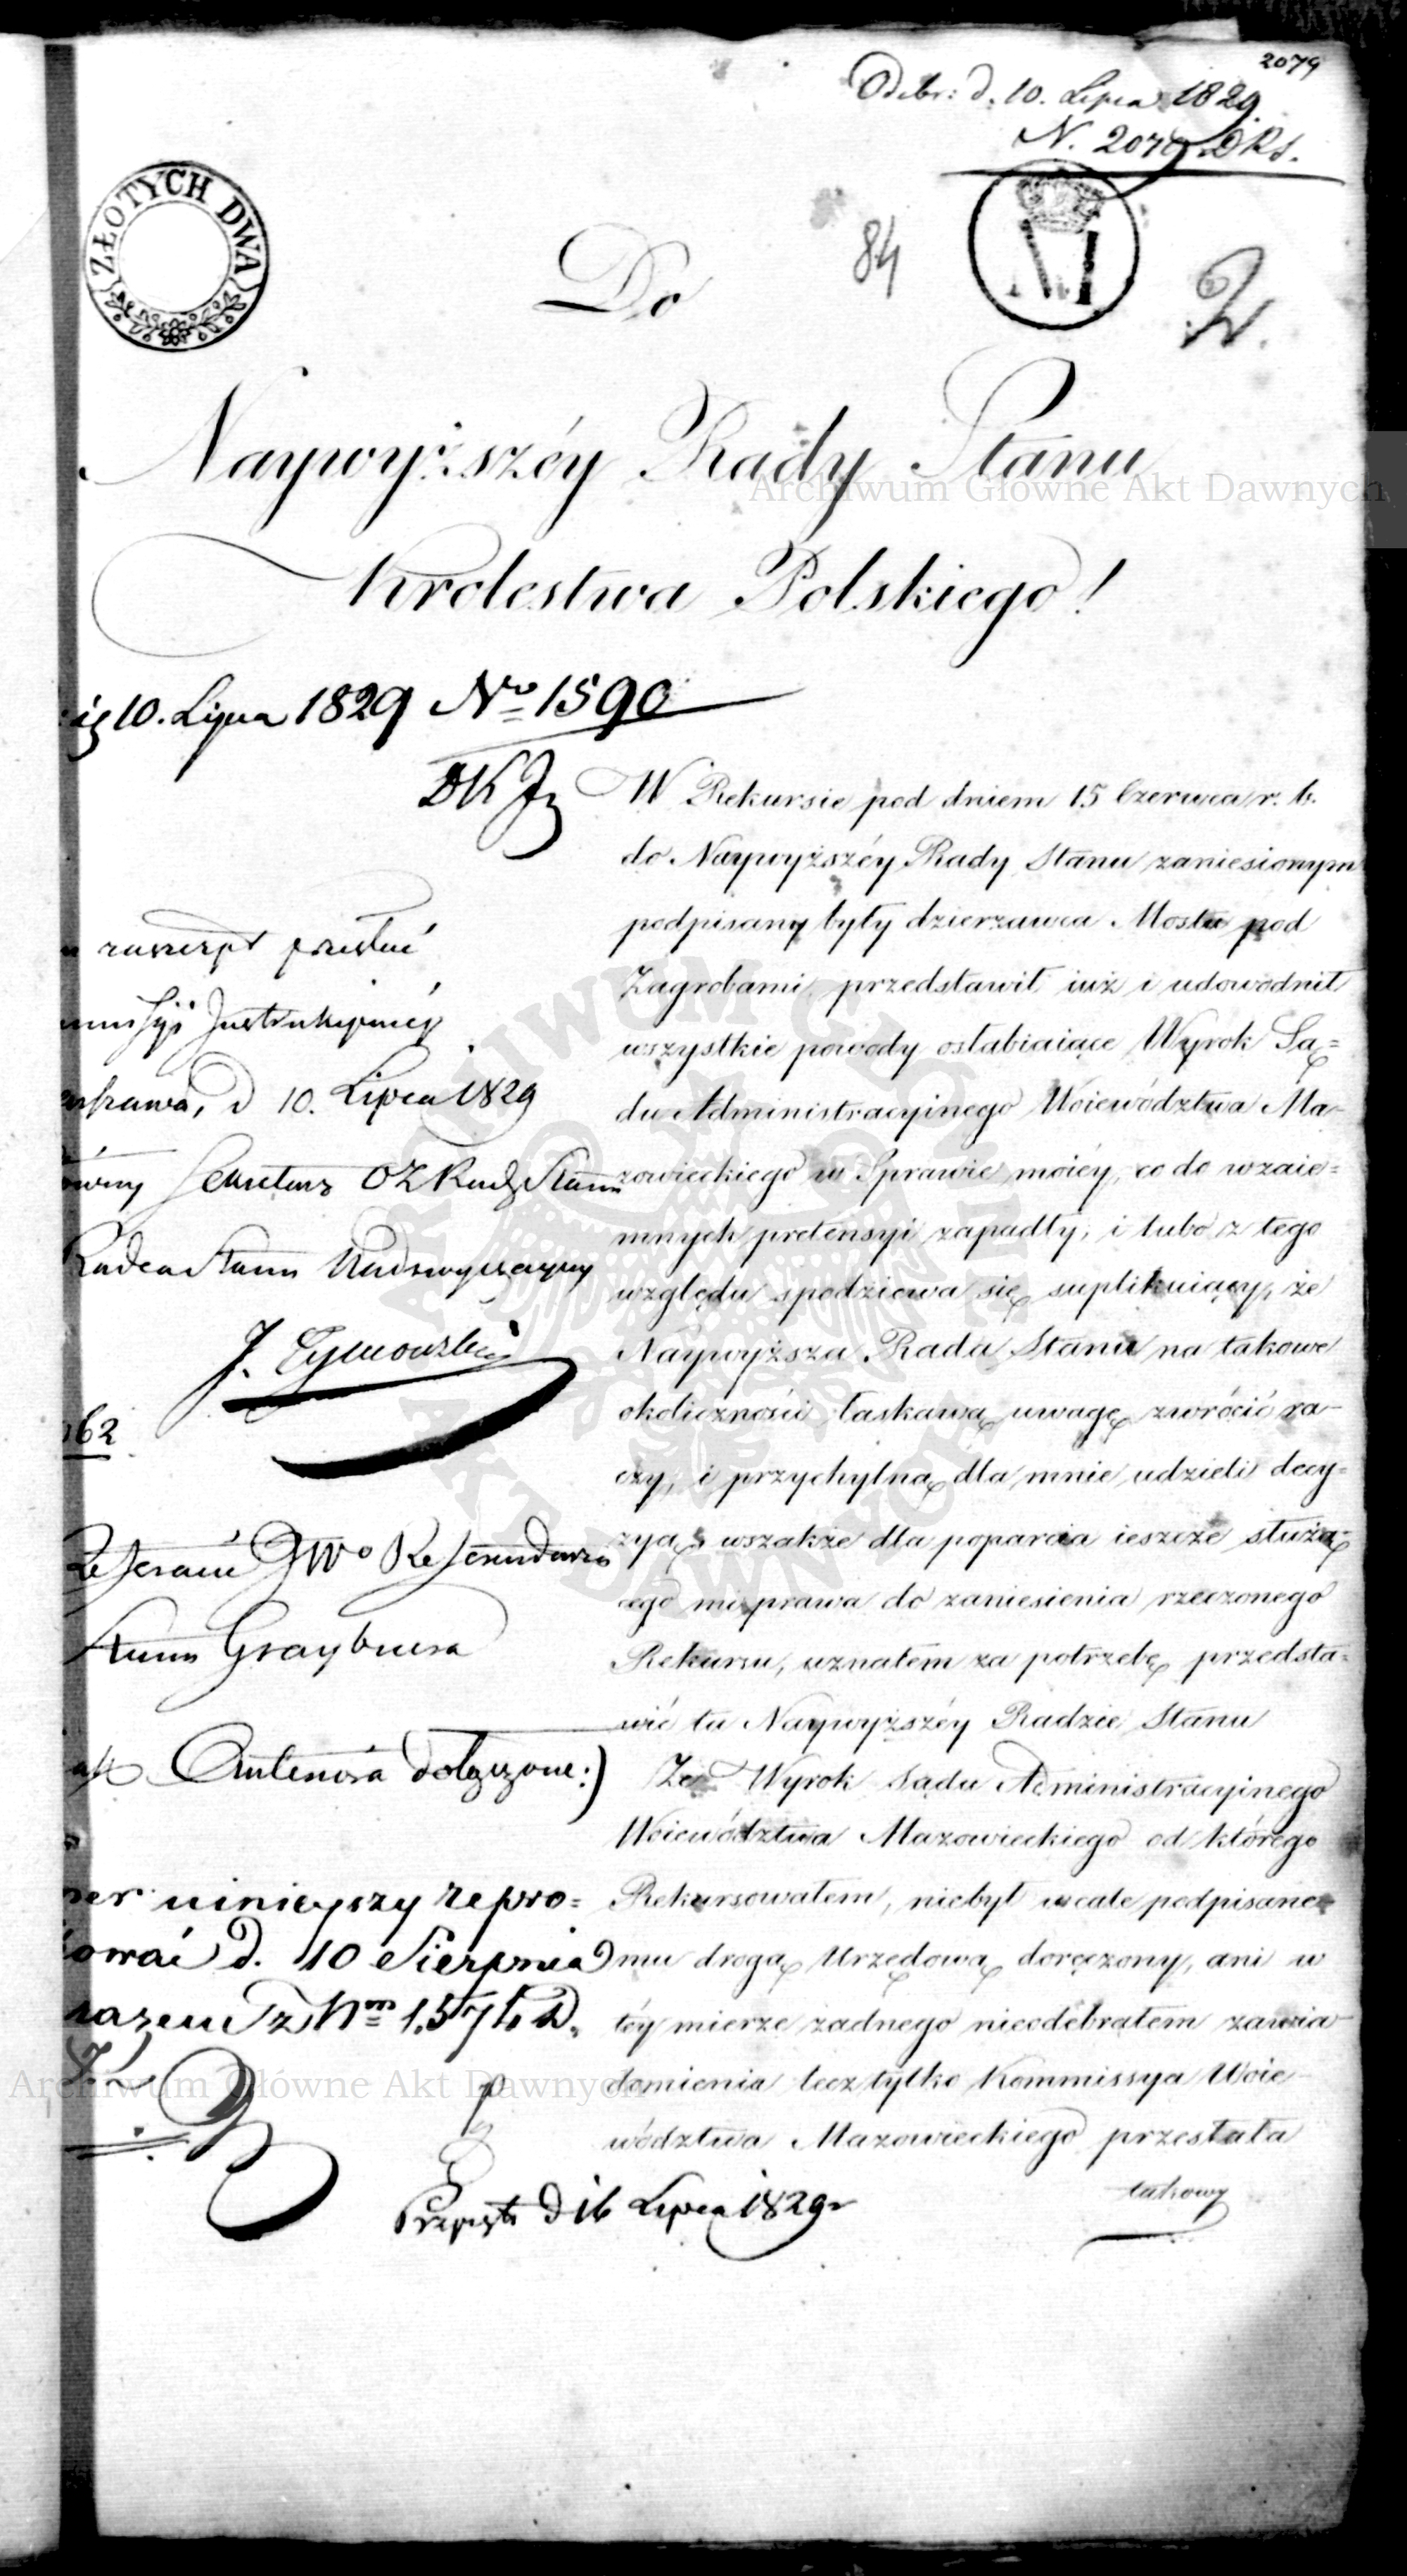 2079
Odebr: d. 10. Lipca 1829
N. 2079 DKS.
ZŁOTYCH DWA
84
Do
Naywyższéy Rady Stanu
Krolestwa Polskiego!
10. Lipca 1829 Nro 1590
W Rekursie pod dniem 15 Czerwca r. b.
do Naywyższéy Rady Stanu zaniesionym
podpisany były dzierzawca Mostu pod
Zagrobami przedstawił iuż i udowodnił
wszystkie powody osłabiaiące Wyrok Są=
du Administracyinego Woiewództwa Ma-
zowieckiego w Sprawie moiéy, co do wzaie=
mnych pretensyi zapadły, i lubo z tego
względu spodziewa się suplikuiący, że
Naywyższa Rada Stanu na takowe
okoliczności łaskawą uwagę zwrócić ra-
czy, i przychylną dla mnie udzieli decy=
zyą, wszakże dla poparcia ieszcze służą=
cego mi prawa do zaniesienia rzeczonego
Rekursu, uznałem za potrzebę przedsta=
wić tu Naywyższéy Radzie Stanu
Że Wyrok Sądu Administracyinego
Woiewództwa Mazowieckiego od którego
Rekursowałem, niebył wcale podpisane-
mu drogą Urzędową doręczony, ani w
téy mierze żadnego nieodebrałem zawia-
domienia lecz tylko Kommissya Woie-
wództwa Mazowieckiego przesłała
takowy
przesłać
d 10. Lipca 1829
Sekretarz Rady Stanu
Radca Stanu Nadzwyczayny
J. Tymowski
62
Referendarz
Stanu Grzybowska
dołączone:)
ninieyszy repro=
d. 10 Sierpnia
razem z Nrm
d 16 Lipca 1829r
Archiwum Główne Akt Dawnych
Archiwum Główne Akt Dawnych
ARCHIWUM GŁÓWNE
AKT DAWNYCH